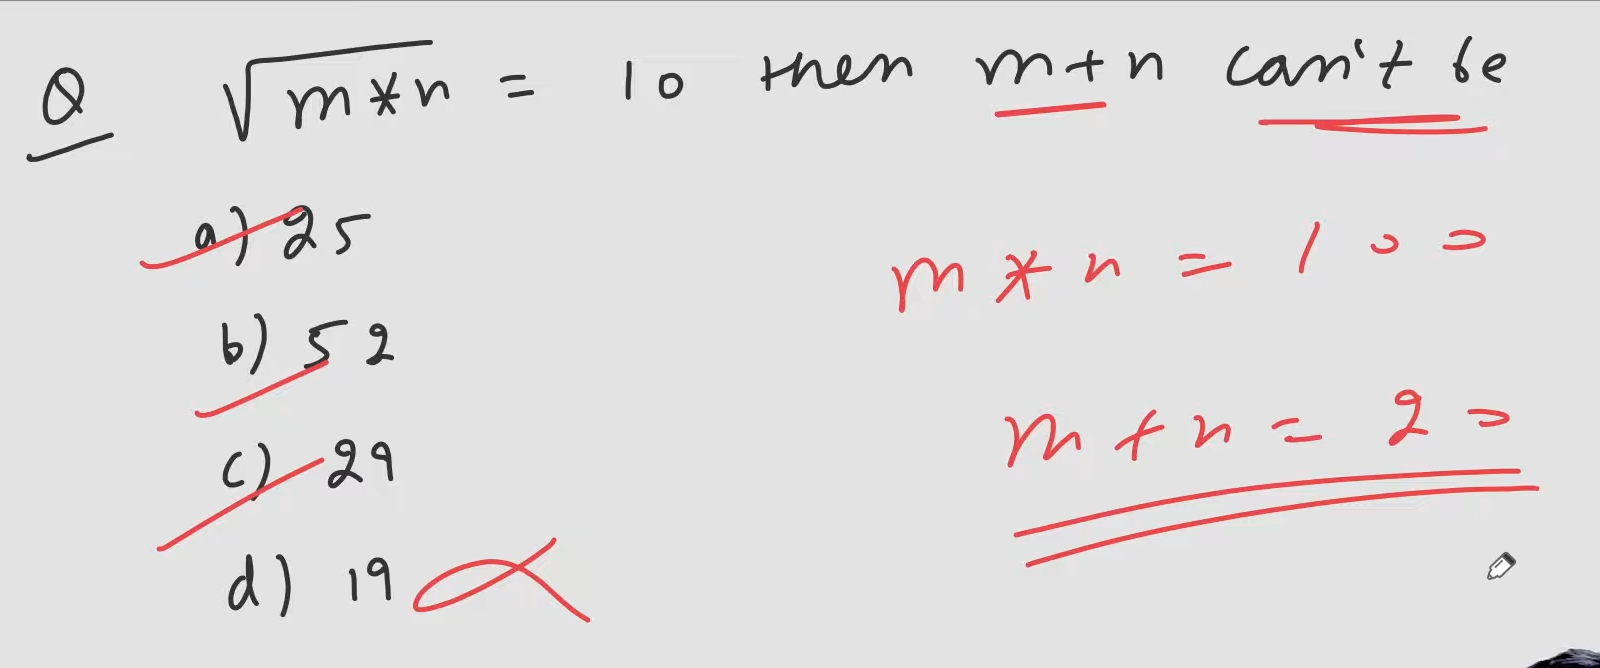 Q √m*n = 10 then m+n can't be
a) 25
b) 52
c) 29
d) 19
m * n = 100
m + n = 20